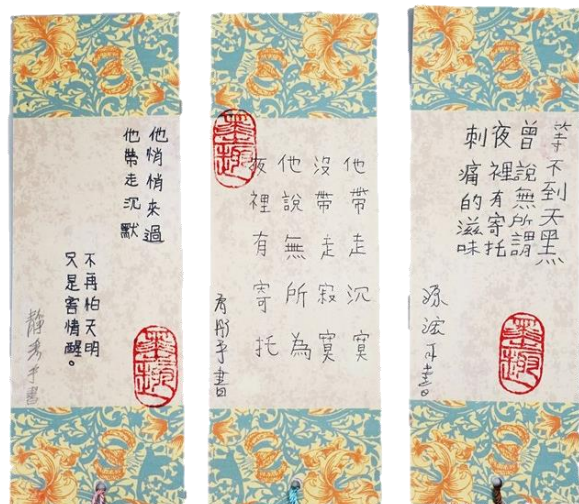 他悄悄來過
他帶走沉默
不再怕天明
只是害情醒。
靜秀手書
墨趣
他帶走沉寞
沒帶走寂寞
他說無所為
夜裡有寄托
手書
墨趣
等不到天黑
曾說無所謂
夜裡有寄托
刺痛的滋味
手書
墨趣